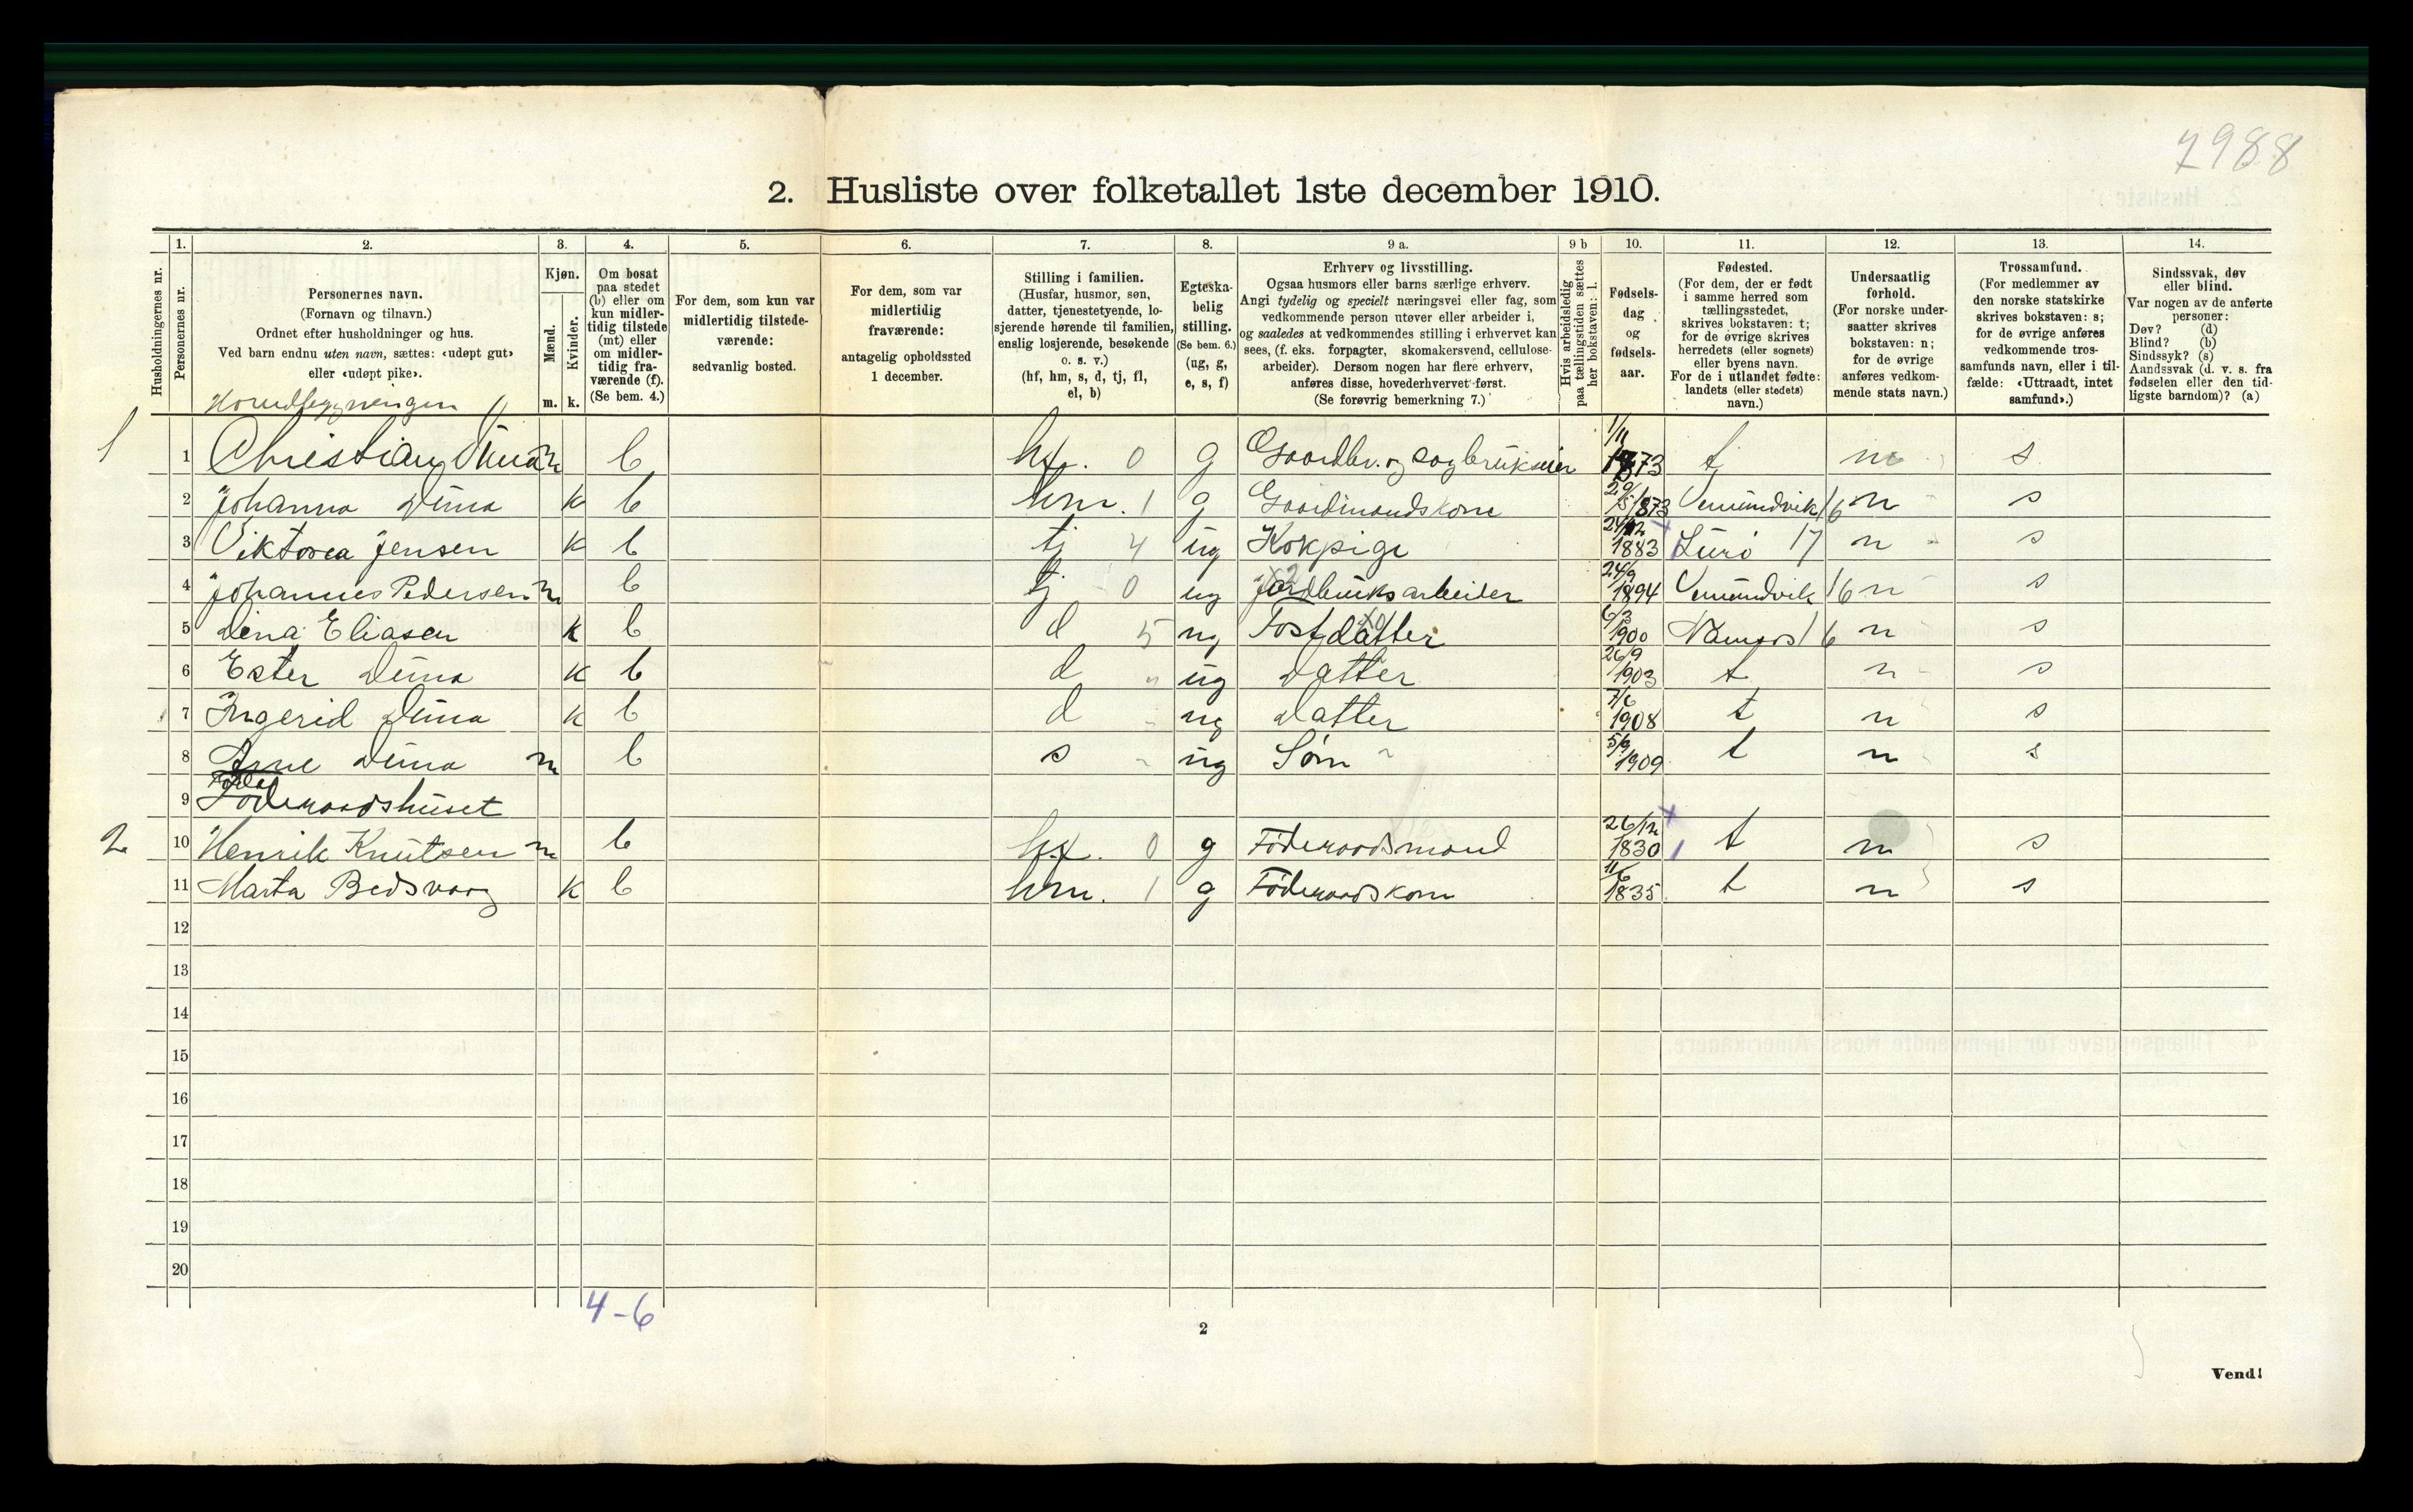 7988
2. Husliste over folketallet 1ste december 1910.
Husholdningernes nr.
1. Personernes nr.
2. Personernes navn.
(Fornavn og tilnavn.)
Ordnet efter husholdninger og hus.
Ved barn endnu uten navn, sættes: «udøpt gut»
eller «udøpt pike».
3. Kjøn.
Mænd. m.
Kvinder. k.
4. Om bosat
paa stedet
(b) eller om
kun midler-
tidig tilstede
(mt) eller
om midler-
tidig fra-
værende (f).
(Se bem. 4.)
5. For dem, som kun var
midlertidig tilstede-
værende:
sedvanlig bosted.
6. For dem, som var
midlertidig
fraværende:
antagelig opholdssted
1 december.
7. Stilling i familien.
(Husfar, husmor, søn,
datter, tjenestetyende, lo-
sjerende hørende til familien,
enslig losjerende, besøkende
o. s. v.)
(hf, hm, s, d, tj, fl,
el, b)
8. Egteska-
belig
stilling.
(Se bem. 6.)
(ug, g,
e, s, f)
9 a. Erhverv og livsstilling.
Ogsaa husmors eller barns særlige erhverv.
Angi tydelig og specielt næringsvei eller fag, som
vedkommende person utøver eller arbeider i,
og saaledes at vedkommendes stilling i erhvervet kan
sees, (f. eks. forpagter, skomakersvend, cellulose-
arbeider). Dersom nogen har flere erhverv,
anføres disse, hovederhvervet først.
(Se forøvrig bemerkning 7.)
9 b Hvis arbeidsledig
paa tællingstiden sættes
her bokstaven: l.
10. Fødsels-
dag
og
fødsels-
aar.
11. Fødested.
(For dem, der er født
i samme herred som
tællingsstedet,
skrives bokstaven: t;
for de øvrige skrives
herredets (eller sognets)
eller byens navn.
For de i utlandet fødte:
landets (eller stedets)
navn.)
12. Undersaatlig
forhold.
(For norske under-
saatter skrives
bokstaven: n;
for de øvrige
anføres vedkom-
mende stats navn.)
13. Trossamfund.
(For medlemmer av
den norske statskirke
skrives bokstaven: s;
for de øvrige anføres
vedkommende tros-
samfunds navn, eller i til-
fælde: «Uttraadt, intet
samfund».)
14. Sindssvak, døv
eller blind.
Var nogen av de anførte
personer:
Døv? (d)
Blind? (b)
Sindssyk? (s)
Aandssvak (d. v. s. fra
fødselen eller den tid-
ligste barndom)? (a)
Hovedbygningen
1 1 Christian Duna m b hf. 0 g Gaardbr. og sagbrukseier 1/11 1873 t n s
2 Johanna Duna k b hm. 1 g Gaardmandskone 29/5 1873 Vemundvik 16 n s
3 Viktoria Jensen k b tj 4 ug Kokpige 24/12 1883 Lurö 17 n s
4 Johannes Pedersen m b tj 0 ug Jordbruksarbeider 24/9 1894 Vemundvik 16 n s
5 Dina Eliasen k b d 5 ug Fostdatter 6/3 1900 Namsos 16 n s
6 Ester Duna k b d " ug Datter 26/9 1903 t n s
7 Ingerid Duna k b d ug Datter 7/6 1908 t n s
8 Arne Duna m b s ug Søn 5/9 1909 t n s
9 Föderaadshuset
2 10 Henrik Knutsen m b hf. 0 g Föderaadsmand 26/12 1830 t n s
11 Marta Bedsvaag k b hm. 1 g Föderaadskone 11/6 1835 t n s
12
13
14
15
16
17
18
19
20
4-6
2
Vend!